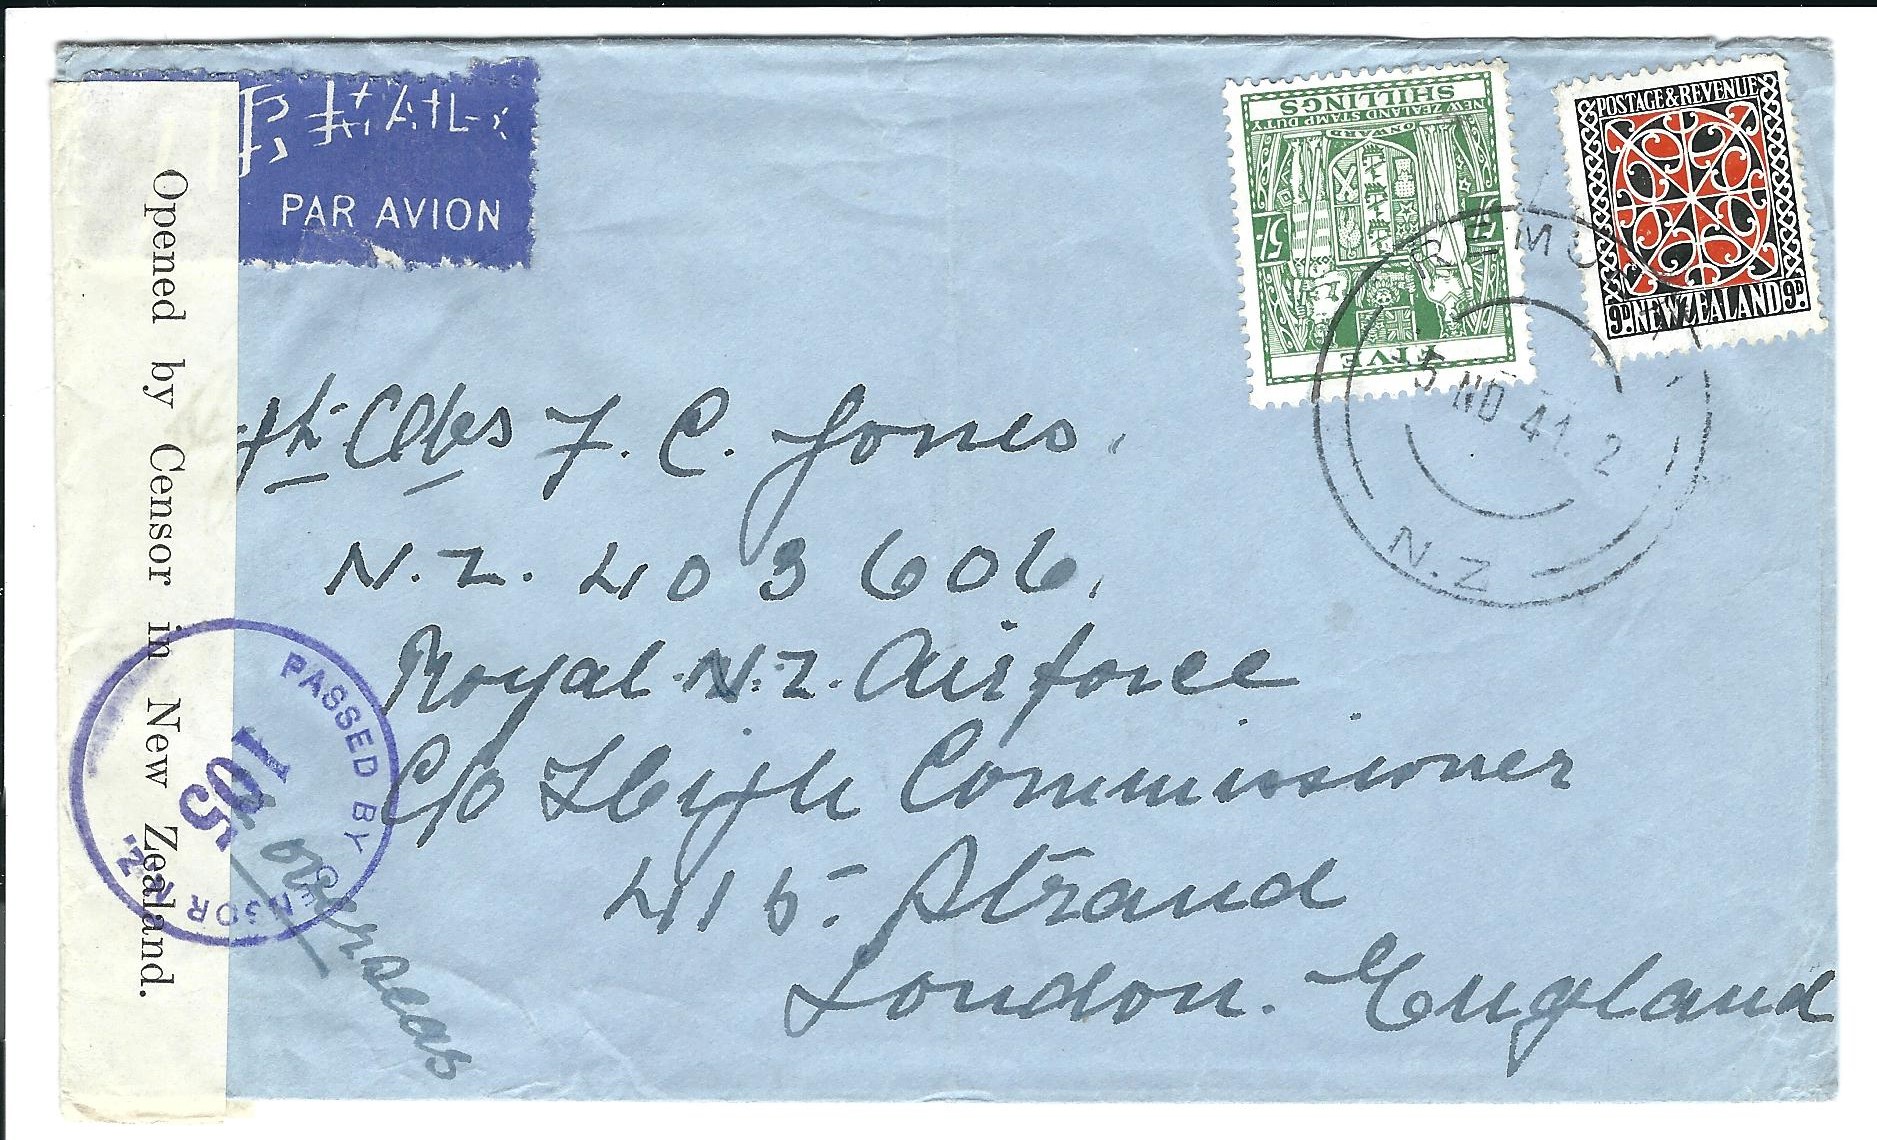 AIR MAIL
PAR AVION
Opened by Censor in New Zealand.
PASSED BY
CENSOR N.Z.
105
NEW ZEALAND STAMP DUTY
SHILLINGS
ONWARD
5/- 5/-
FIVE
POSTAGE & REVENUE
9D. NEW ZEALAND 9D.
REMU
5 NO 41. 2
N.Z
F. C. Jones.
N.Z. 403606.
Royal N.Z. Airforce
C/o High Commissioner
415 Strand
London. England
overseas